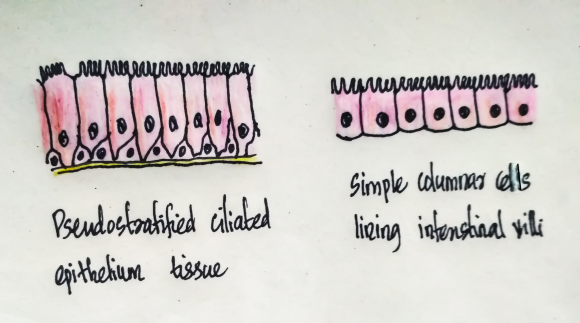 Pseudostratified ciliated
epithelium tissue
simple columnar cells
lining intenstinal villi